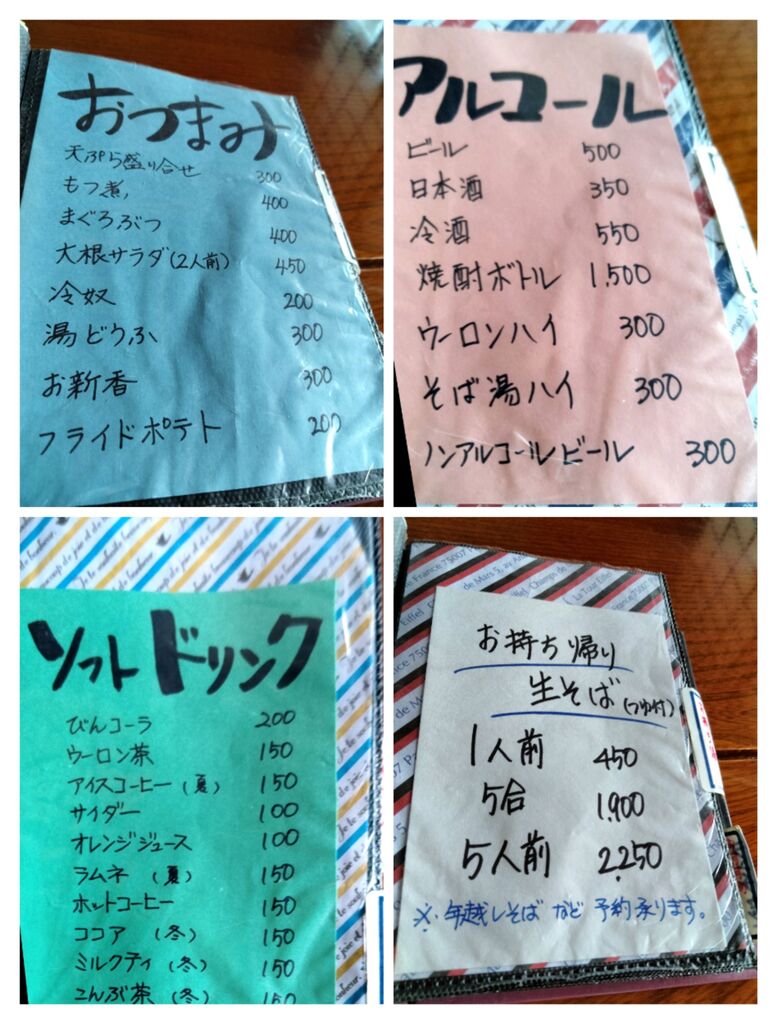 おつまみ
天ぷら盛り合せ 300
もつ煮 400
まぐろぶつ 400
大根サラダ(2人前) 450
冷奴 200
湯どうふ 300
お新香 300
フライドポテト 200
アルコール
ビール 500
日本酒 350
冷酒 550
焼酎ボトル 1,500
ウーロンハイ 300
そば湯ハイ 300
ノンアルコールビール 300
ソフトドリンク
びんコーラ 200
ウーロン茶 150
アイスコーヒー(夏) 150
サイダー 100
オレンジジュース 100
ラムネ(夏) 150
ホットコーヒー 150
ココア(冬) 150
ミルクティ(冬) 150
こんぶ茶(冬) 150
お持ち帰り
生そば(つゆ付)
1人前 450
5合 1,900
5人前 2,250
※.年越しそばなど予約承ります。